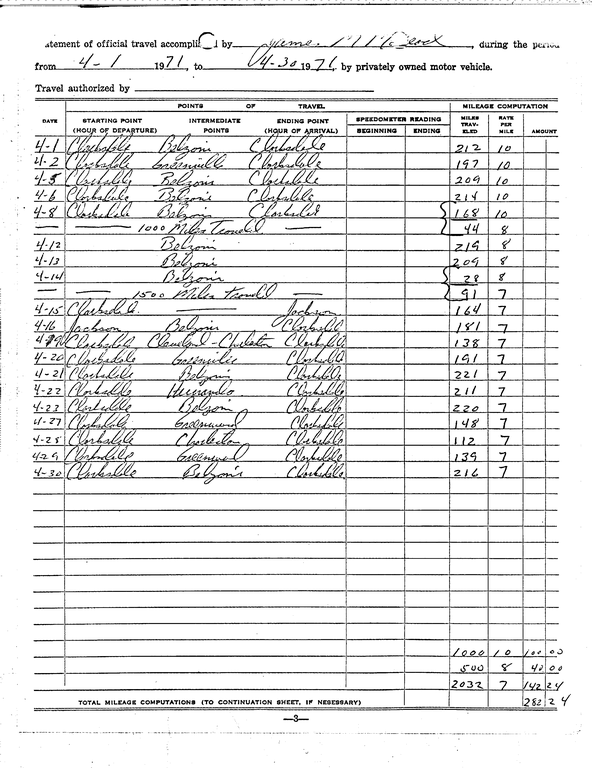 atement of official travel accompli d by James , during the period
from 4-1 1971, to 4-30 1971, by privately owned motor vehicle.
Travel authorized by
POINTS OF TRAVEL MILEAGE COMPUTATION
DATE STARTING POINT (HOUR OF DEPARTURE) INTERMEDIATE POINTS ENDING POINT (HOUR OF ARRIVAL) SPEEDOMETER READING BEGINNING ENDING MILES TRAV- ELED RATE PER MILE AMOUNT
4-1 Clarksdale Belzoni Clarksdale 212 10
4-2 Clarksdale Greenville Clarksdale 197 10
4-5 Clarksdale Belzoni Clarksdale 209 10
4-6 Clarksdale Belzoni Clarksdale 214 10
4-8 Clarksdale Belzoni Clarksdale 168 10
1000 Miles Traveld 44 8
4-12 Belzoni 219 8
4-13 Belzoni 209 8
4-14 Belzoni 28 8
1500 Miles Traveld 91 7
4-15 Clarksdale Jackson 164 7
4-16 Jackson Belzoni Clarksdale 181 7
4-19 Clarksdale Cleveland-Charleston Clarksdale 138 7
4-20 Clarksdale Greenville Clarksdale 191 7
4-21 Clarksdale Belzoni Clarksdale 221 7
4-22 Clarksdale Hernando Clarksdale 211 7
4-23 Clarksdale Belzoni Clarksdale 220 7
4-27 Clarksdale Greenwood Clarksdale 148 7
4-28 Clarksdale Charleston Clarksdale 112 7
4-29 Clarksdale Greenwood Clarksdale 139 7
4-30 Clarksdale Belzoni Clarksdale 216 7
1000 10 100 00
500 8 40 00
2032 7 142 24
TOTAL MILEAGE COMPUTATIONS (TO CONTINUATION SHEET, IF NESESSARY) 282 24
—3—